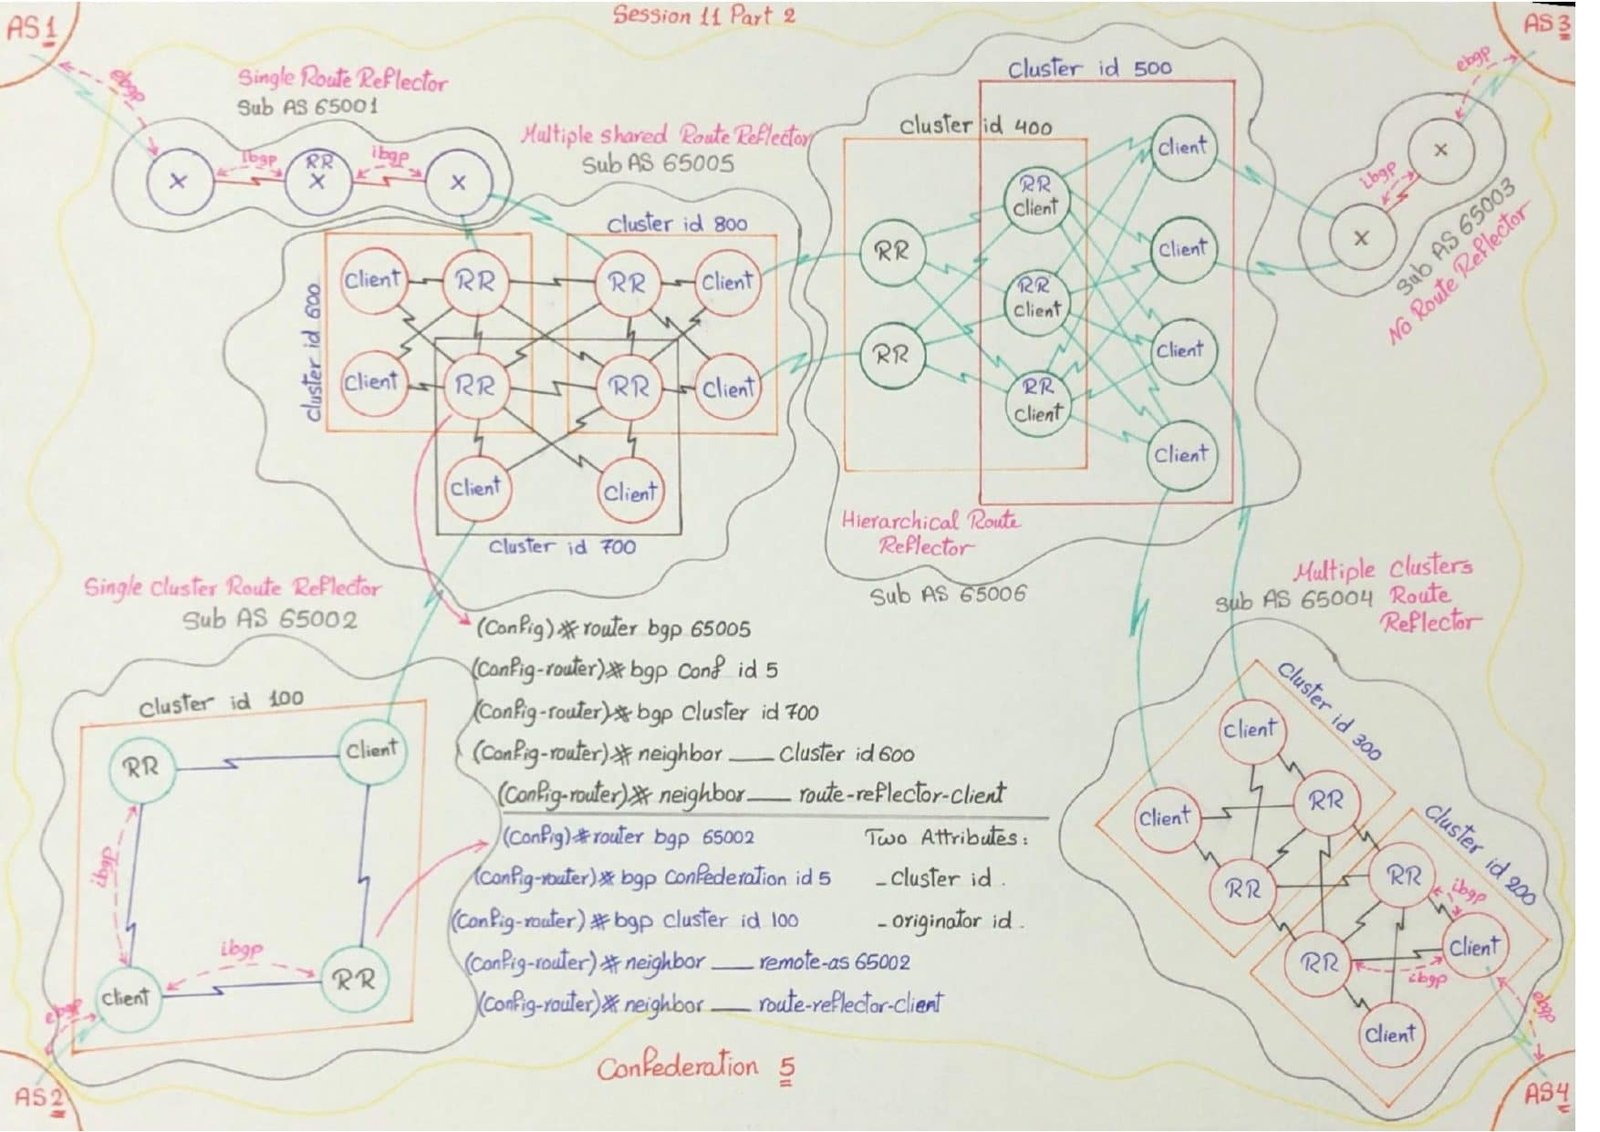 Session 11 Part 2
AS1
ebgp
Single Route Reflector
Sub AS 65001
X
ibgp
RR
X
ibgp
X
Multiple shared Route Reflector
Sub AS 65005
Cluster id 800
Cluster id 600
Client
RR
RR
Client
Client
RR
RR
Client
Client
Client
Cluster id 700
Cluster id 500
Cluster id 400
RR
RR
RR
Client
RR
Client
RR
Client
Client
Client
Client
Client
Hierarchical Route
Reflector
Sub AS 65006
AS3
ebgp
X
ibgp
X
Sub AS 65003
No Route Reflector
Single Cluster Route Reflector
Sub AS 65002
Cluster id 100
RR
Client
ibgp
ibgp
Client
RR
ebgp
AS2
(Config)# router bgp 65005
(Config-router)# bgp Conf id 5
(Config-router)# bgp Cluster id 700
(Config-router)# neighbor ___ Cluster id 600
(Config-router)# neighbor ___ route-reflector-client
(Config)# router bgp 65002
(Config-router)# bgp Confederation id 5
(Config-router)# bgp cluster id 100
(Config-router)# neighbor ___ remote-as 65002
(Config-router)# neighbor ___ route-reflector-client
Two Attributes:
- Cluster id.
- originator id.
Confederation 5
Multiple Clusters
Sub AS 65004 Route
Reflector
Cluster id 300
Client
Client
RR
RR
Cluster id 200
RR
ibgp
RR
Client
ibgp
Client
ebgp
AS4